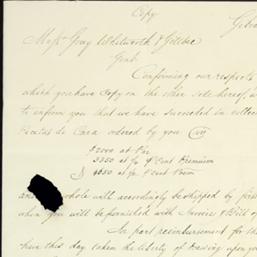 Copy
Mess.rs Gray Whitworth &
Gent
Confirming our respects
which you have Copy on the other side hereof,
to inform you that we have succeeded in
de Cara ordered by you
$2000 at Par
3350 at ¼ P Cent Premium
4650 at ½ P Cent Prem
whole will accordingly be shipped by
when you will be furnished with Invoice & Bill of
In part reimbursement for th
have this day taken the liberty of drawing upon you